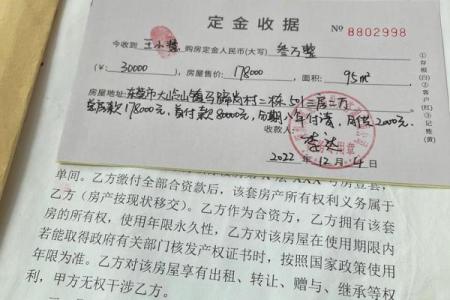 定金收据
№ 8802998
今收到 王小慧 购房定金人民币(大写) 叁万整
(¥: 30000 房屋售价: 178000 面积: 95㎡
房屋地址: 东莞市大岭山镇马蹄岗村二栋501三房二厅
总房款178000元,首付款80000元,分期八年付清,月供2000元.
收款人: 李达
2022.12.4日
①存根(白)②客户(红)③记账(黄)
单间。乙方缴付全部合资款后,该套房产所有权利义务属于
乙方(房产按现状移交)。乙方作为合资方,乙方拥有该套
房的所有权,使用年限永久性,乙方对该房屋在使用期限内
若能取得政府有关部门核发产权证书时,按照国家政策使用
年限为准。乙方对该房屋享有出租、转让、赠与、继承等权
利,甲方无权干涉乙方。